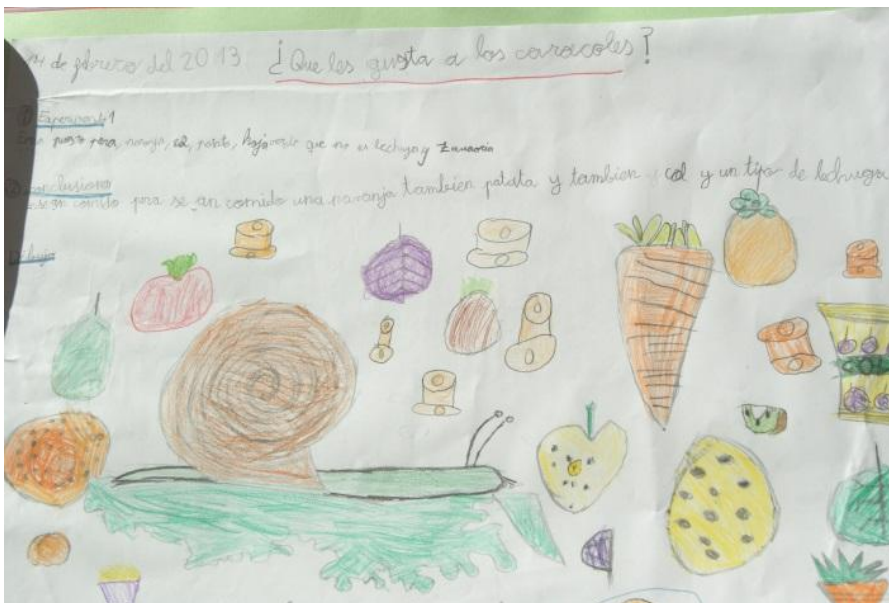 14 de febrero del 2013 ¿Que les gusta a los caracoles?
① Experimento 1
puesto pera, naranja, col, patata, hoja verde que no es lechuga y Zanaoria
② conclusiones
comido pera se an comido una naranja tambien patata y tambien col y un tipo de lechuga
Dibujo